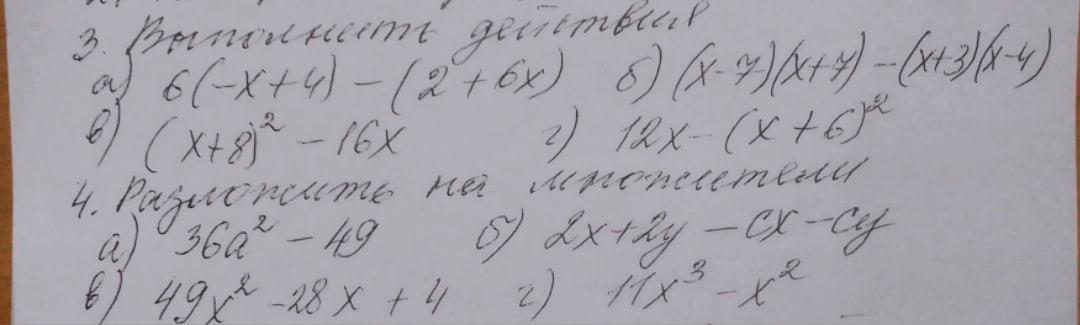 3. Выполнить действия
а) 6(-x+4) - (2+6x) б) (x-7)(x+7) - (x+3)(x-4)
в) (x+8)² - 16x г) 12x - (x+6)²
4. Разложить на множители
а) 36a² - 49 б) 2x+2y - cx - cy
в) 49x² - 28x + 4 г) 11x³ - x²